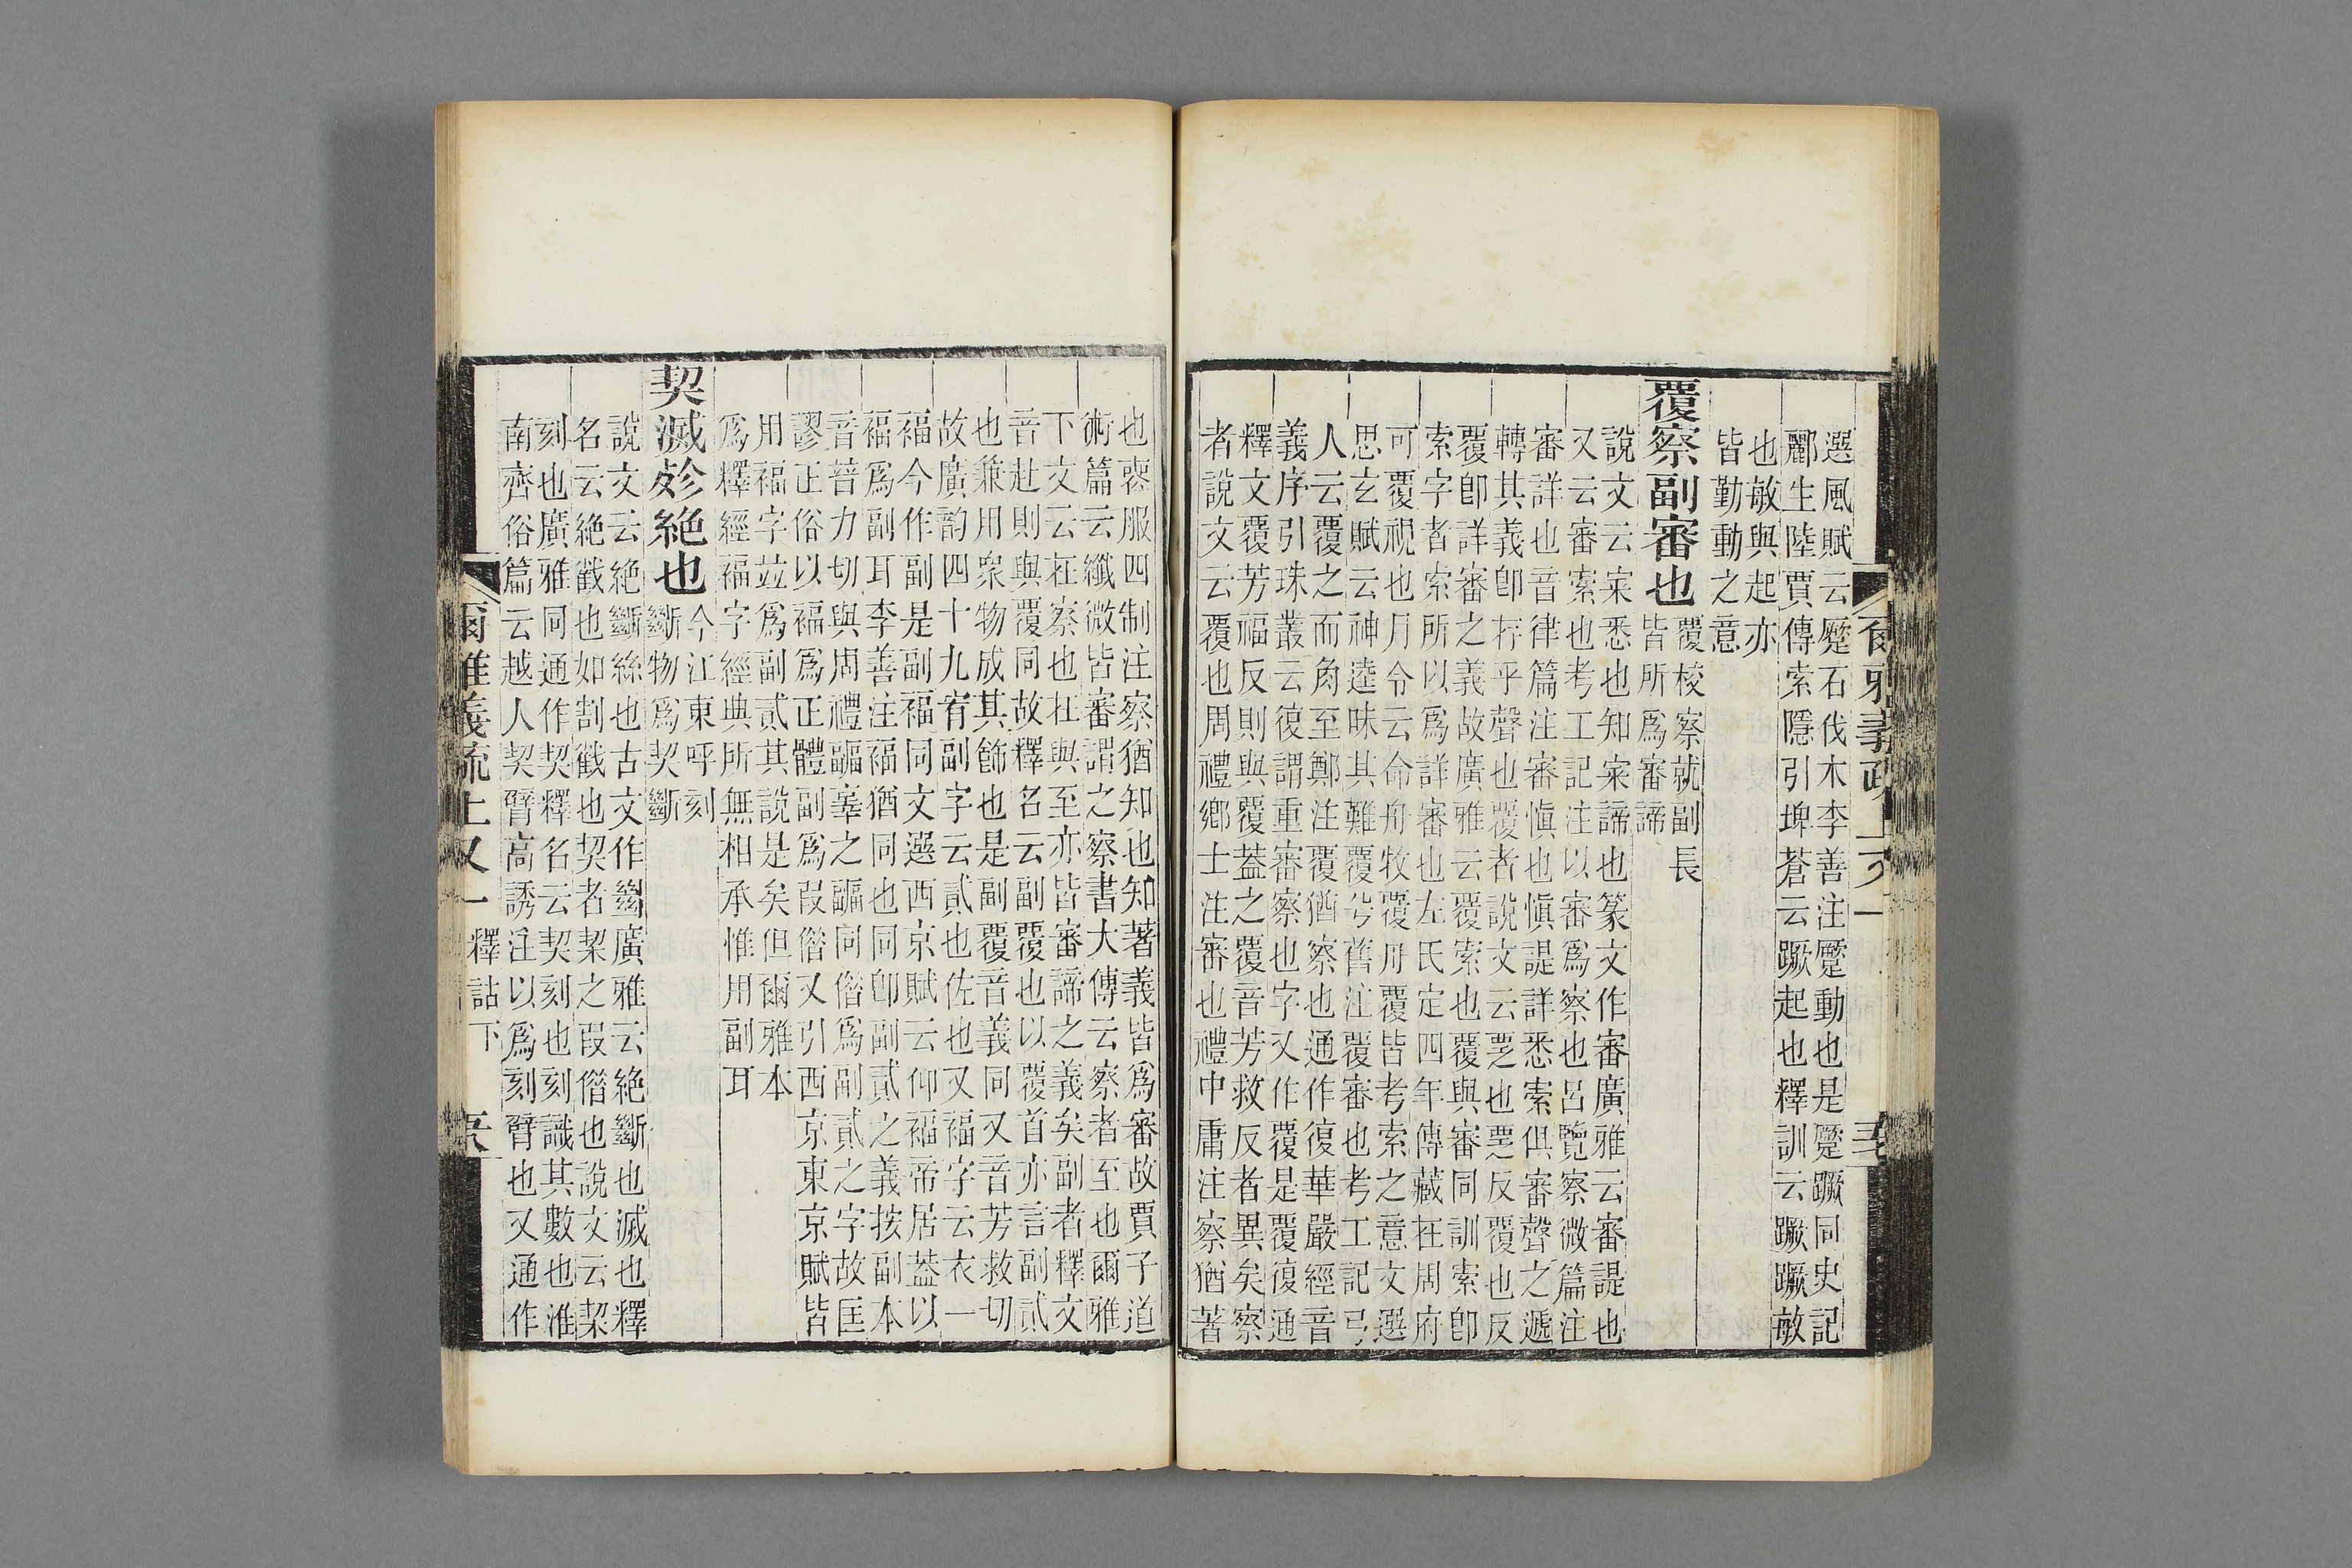 選風賦云蹷石伐木李善注蹷動也是蹷蹶同史記
酈生陸賈傳索隱引埤蒼云蹶起也釋訓云蹶蹶敏
也敏與起亦
皆勤動之意
覆察副審也
覆校察就副長
皆所爲審諦
說文云宷悉也知宷諦也篆文作審廣雅云審諟也
又云審索也考工記注以審爲察也呂覽察微篇注
審詳也音律篇注審愼也愼諟詳悉索俱審聲之遞
轉其義卽捊乎聲也覆者說文云覂也覂反覆也反
覆卽詳審之義故廣雅云覆索也覆與審同訓索卽
索字者索所以爲詳審也左氏定四年傳藏在周府
可覆視也月令云命舟牧覆舟覆皆考索之意文選
思玄賦云神逵昧其難覆兮舊注覆審也考工記弓
人云覆之而角至鄭注覆猶察也通作復華嚴經音
義序引珠叢云復謂重審察也字又作覆是覆復通
釋文覆芳福反則與覆葢之覆音芳救反者異矣察
者說文云覆也周禮鄉士注審也禮中庸注察猶著
也喪服四制注察猶知也知著義皆爲審故賈子道
術篇云纖微皆審謂之察書大傳云察者至也爾雅
下文云在察也在與至亦皆審諦之義矣副者釋文
音赴則與覆同故釋名云副覆也以覆首亦言副貳
也兼用衆物成其飾也是副覆音義同又音芳救切
故廣韵四十九宥副字云貳也佐也又褔字云衣一
褔今作副是副褔同文選西京賦云仰褔帝居葢以
褔爲副耳李善注褔猶同也同卽副貳之義按副本
音菩力切與周禮疈辜之疈同偕爲副貳之字故匡
謬正俗以褔爲正體副爲叚偕又引西京東京賦皆
用褔字竝爲副貳其說是矣但爾雅本
爲釋經褔字經典所無相承惟用副耳
契滅殄絕也
今江東呼刻
斷物爲契斷
說文云絕斷絲也古文作𢇍廣雅云絕斷也滅也釋
名云絕截也如割截也契者栔之叚偕也說文云栔
刻也廣雅同通作契釋名云契刻也刻識其數也淮
南齊俗篇云越人契臂高誘注以爲刻臂也又通作
爾雅義疏上又一 釋詁下